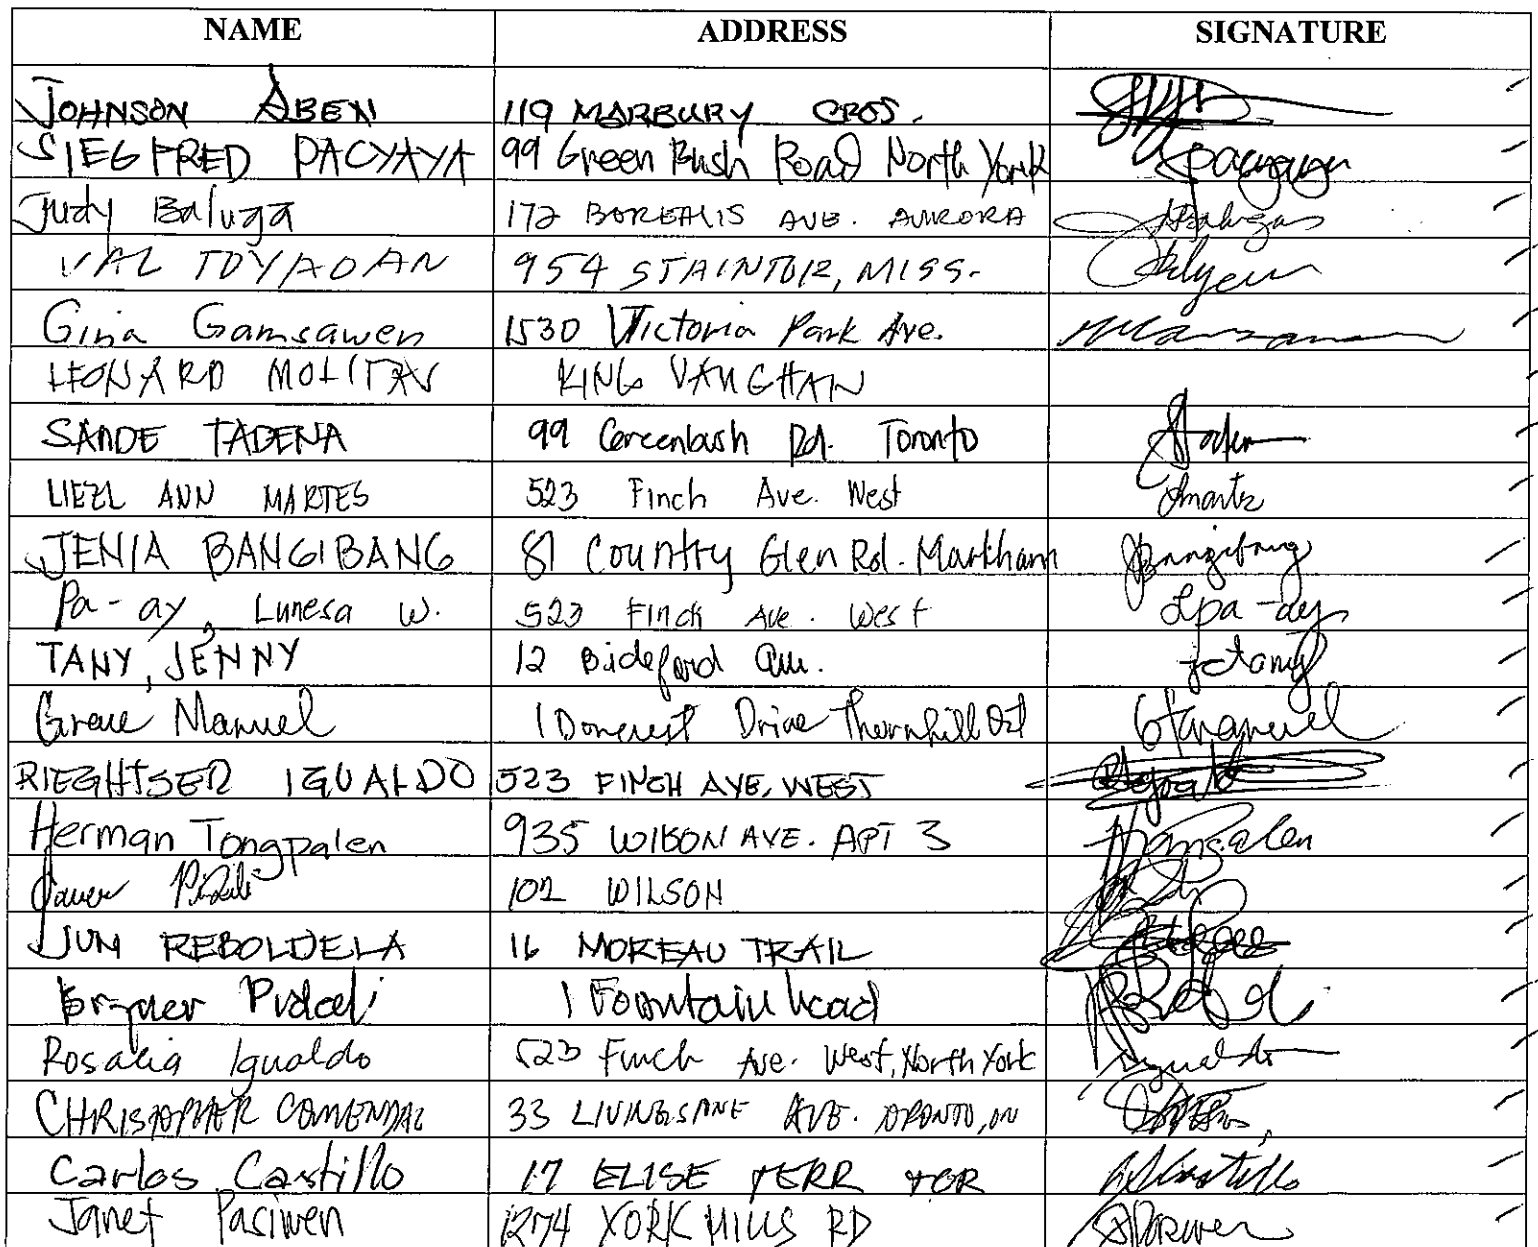 NAME ADDRESS SIGNATURE
JOHNSON ABEN 119 MARBURY CRES.
SIEGFRED PACYAYA 99 Green Bush Road North York
Judy Baluga 172 BOREALIS AVE. AURORA
VAL TOYAOAN 954 STAINTON, MISS.
Gina Gamsawen 1530 Victoria Park Ave.
LEONARD MOLITAV KING VAUGHAN
SANDE TADENA 99 Greenbush Rd. Toronto
LIEZL ANN MARTES 523 Finch Ave. West
JENIA BANGIBANG 81 Country Glen Rd. Markham Bangibang
Pa-ay, Lunesa W. 523 Finch Ave. West Lpa-ay
TANY, JENNY 12 Bideford Ave. jctany
Manuel 1 Doncrest Drive Thornhill Ont
RIEGHTSER IGUALDO 523 FINCH AVE. WEST
Herman Tongpalen 935 WILSON AVE. APT 3
102 WILSON
JUN REBOLDELA 16 MOREAU TRAIL
Pidcli 1 Fountain head
Rosalia Igualdo 523 Finch Ave. West, North York
CHRISTOPHER COMENDAL 33 AVE.
Carlos Castillo 17 ELISE TERR TOR
Janet Pasiwen 1274 YORK MILLS RD